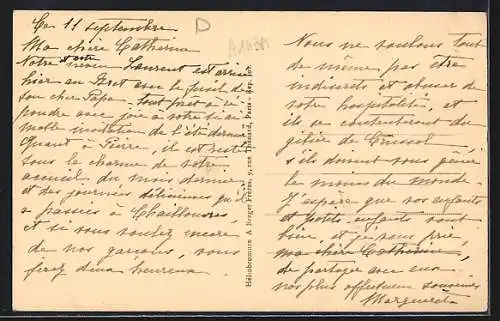 Ce 11 septembre
D
A11431
Ma chère Catherine
Notre et votre neveu Laurent est arrivé
hier au avec le fusil de
son cher Papa tout prêt à ré-
pondre avec joie à votre si ai-
mable invitation de l'été dernier
Quant à Pierre, il est resté
sous le charme de votre
accueil du mois dernier
et des journées délicieuses qu'il
a passées à
et si vous voulez encore
de nos garçons, vous
ferez deux heureux.
Héliobromure A. Breger Frères, 9, rue Thénard, Paris - Rep. Int.
Nous ne voulons tout
de même pas être
indiscrets et abuser de
votre hospitalité, et
ils se contenteront du
gibier de
s'ils doivent vous gêner
le moins du monde.
J'espère que vos enfants
et petits enfants sont
bien, et je vous prie,
ma chère Catherine,
de partager avec eux
nos plus affectueux souvenirs
Marguerite